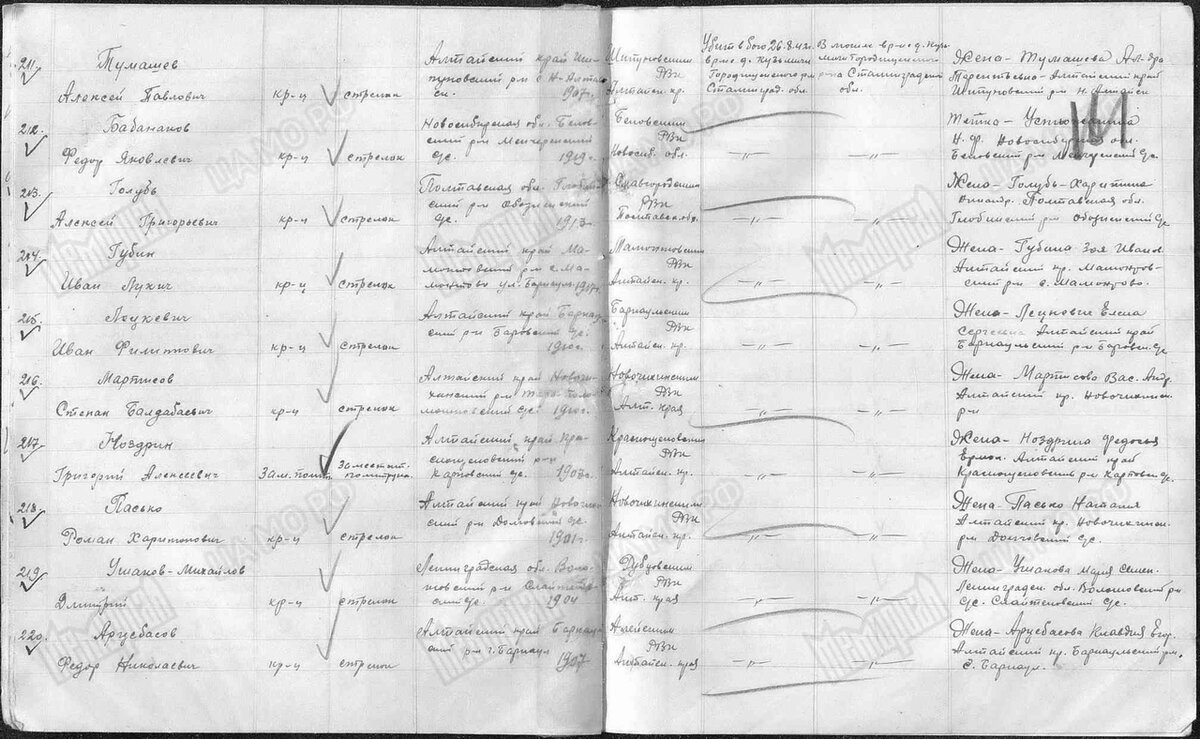 211.
Тумашев
Алексей Павлович кр-ц стрелок
Алтайский край Ши-
пуновский р-н с Н-Алтай
1907г.
Шипуновским
РВК
Алтайск. кр.
Убит в бою 26.8.42г.
в р-не д. Кузьмичи
Городищенского р-на
Сталинград. обл.
В могиле в р-не д. Кузь-
мичи Городищенского
р-на Сталинградской
обл.
Жена - Тумашева
Алтайский край
Шипуновский р-н Н. Алтайск
161
212.
Бабанаков
Федор Яковлевич кр-ц стрелок
Новосибирская обл. Белов-
ский р-н
с/с. 1919г.
Беловским
РВК
Новосиб. обл. —„— —„—
Тетка -
Н. Ф. Новосибирская обл.
Беловский р-н с/с.
213.
Голубь
Алексей Григорьевич кр-ц стрелок
Полтавская обл. Глобин-
ский р-н
с/с. 1913г.
Славгородским
РВК
—„— —„—
Жена - Голубь - Харитина
Полтавская обл.
Глобинский р-н с/с
214.
Губин
Иван Лукич кр-ц стрелок
Алтайский край Ма-
монтовский р-н с. Ма-
монтово ул. Барнаул. 1917г.
Мамонтовским
РВК
Алтайск. кр. —„— —„—
Жена - Губина Зоя Иванов
Алтайский кр. Мамонтов-
ский р-н с. Мамонтово.
215.
Лецкевич
Иван Филиппович кр-ц стрелок
Алтайский край Барнауль-
ский р-н Баровский с/с.
1910г.
Барнаульским
РВК
Алтайск. кр. —„— —„—
Жена - Лецкевич Елена
Сергеевна Алтайский край
Барнаульский р-н Баровск. с/с
216.
Мартисов
Степан Балдабаевич кр-ц стрелок
Алтайский край Новочи-
хинский р-н
с/с 1910г.
Новочихинским
РВК
Алт. края —„— —„—
Жена - Мартисова Вас. Андр.
Алтайский кр. Новочихинск.
р-н
217.
Ноздрин
Григорий Алексеевич Зам.полит. Заместит.
политрука
Алтайский край Кра-
снощековский р-н
Карповский с/с. 1907г.
Краснощековским
РВК
Алтайск. кр. —„— —„—
Жена - Ноздрина Федосья
Ермол. Алтайский край
Краснощековский р-н Карповск с/с.
218.
Пасько
Роман Харитонович кр-ц стрелок
Алтайский край Новочихин-
ский р-н Долговский с/с.
1901г.
Новочихинским
РВК
Алтайск. кр. —„— —„—
Жена - Пасько Наталия
Алтайский кр. Новочихинск.
р-н Долговский с/с.
219.
Ушаков-Михайлов
Дмитрий кр-ц стрелок
Ленинградская обл. Воло-
совский р-н
с/с. 1904
РВК
Алт. края —„— —„—
Жена - Ушакова Мария Семен.
Ленинградск. обл. Волосовский р-н
с/с.
220.
Арцебасов
Федор Николаевич кр-ц стрелок
Алтайский край Барнауль-
ский р-н г. Барнаул
1907
Алейским
РВК
Алтайск. края —„— —„—
Жена - Арцебасова Клавдия Егор.
Алтайский кр. Барнаульский р-н.
с. Барнаул.
ЦАМО РФ
МЕМОРИАЛ